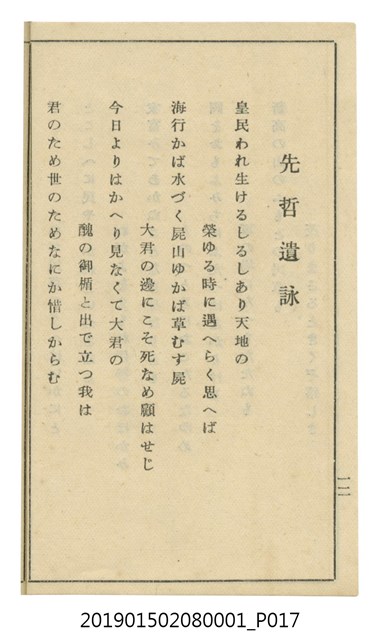 先哲遺詠
皇民われ生けるしるしあり天地の
榮ゆる時に遇へらく思へば
海行かば水づく屍山ゆかば草むす屍
大君の邊にこそ死なめ顧はせじ
今日よりはかへり見なくて大君の
醜の御楯と出で立つ我は
君のため世のためなにか惜しからむ
201901502080001_P017